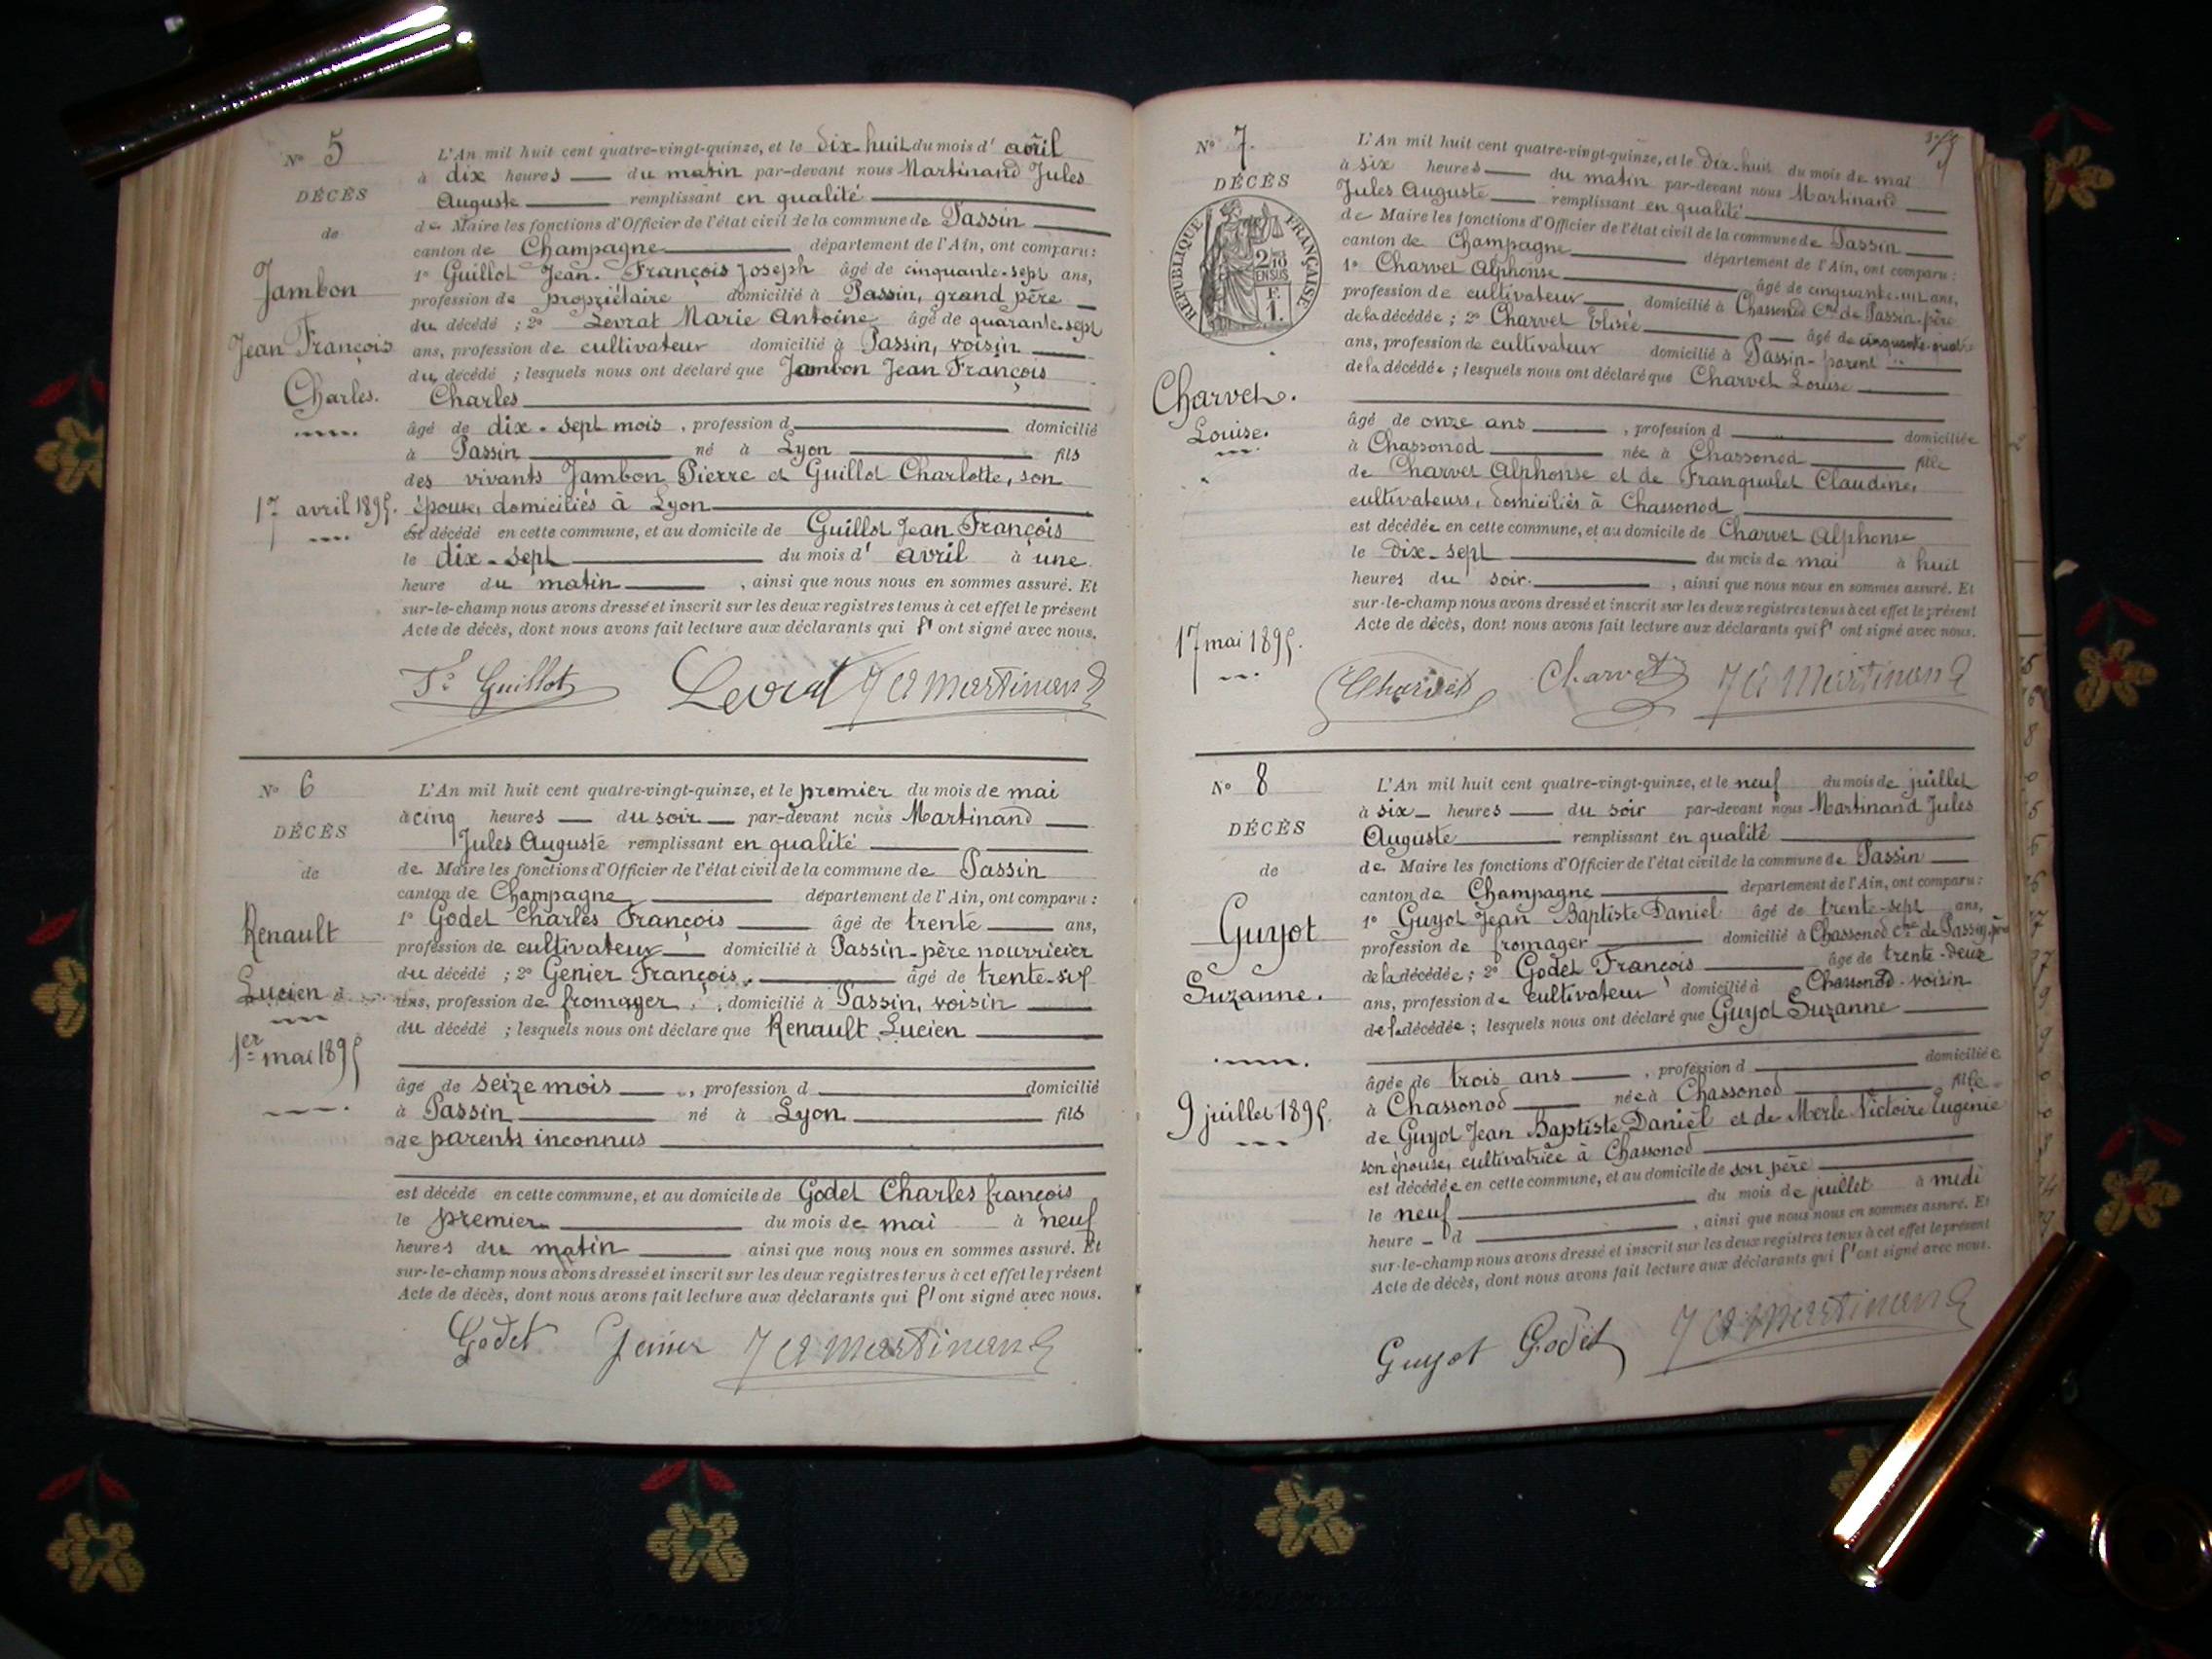 N° 5
DÉCÈS
de
Jambon
Jean François
Charles.
17 avril 1895.
L'An mil huit cent quatre-vingt-quinze, et le dix-huit du mois d' avril
à dix heures du matin par-devant nous Martinand Jules
Auguste remplissant en qualité
de Maire les fonctions d'Officier de l'état civil de la commune de Passin
canton de Champagne département de l'Ain, ont comparu :
1° Guillot Jean-François Joseph âgé de cinquante-sept ans,
profession de propriétaire domicilié à Passin, grand père
du décédé ; 2° Levrat Marie Antoine âgé de quarante-sept
ans, profession de cultivateur domicilié à Passin, voisin
du décédé ; lesquels nous ont déclaré que Jambon Jean François
Charles
âgé de dix-sept mois, profession d domicilié
à Passin né à Lyon fils
des vivants Jambon Pierre et Guillot Charlotte, son
épouse, domiciliés à Lyon
est décédé en cette commune, et au domicile de Guillot Jean François
le dix-sept du mois d' avril à une
heure du matin, ainsi que nous nous en sommes assuré. Et
sur-le-champ nous avons dressé et inscrit sur les deux registres tenus à cet effet le présent
Acte de décès, dont nous avons fait lecture aux déclarants qui l'ont signé avec nous.
Guillot Levrat J A Martinand
N° 6
DÉCÈS
de
Renault
Lucien
1er mai 1895
L'An mil huit cent quatre-vingt-quinze, et le premier du mois de mai
à cinq heures du soir par-devant nous Martinand
Jules Auguste remplissant en qualité
de Maire les fonctions d'Officier de l'état civil de la commune de Passin
canton de Champagne département de l'Ain, ont comparu :
1° Godet Charles François âgé de trente ans,
profession de cultivateur domicilié à Passin-père nourricier
du décédé ; 2° Genier François, âgé de trente-six
ans, profession de fromager, domicilié à Passin, voisin
du décédé ; lesquels nous ont déclaré que Renault Lucien
âgé de seize mois, profession d domicilié
à Passin né à Lyon fils
de parents inconnus
est décédé en cette commune, et au domicile de Godet Charles françois
le premier du mois de mai à neuf
heures du matin ainsi que nous nous en sommes assuré. Et
sur-le-champ nous avons dressé et inscrit sur les deux registres tenus à cet effet le présent
Acte de décès, dont nous avons fait lecture aux déclarants qui l'ont signé avec nous.
Godet Genier J A Martinand
N° 7
DÉCÈS
RÉPUBLIQUE FRANÇAISE
2/10 EN SUS
F.
1.
Charvet.
Louise.
17 mai 1895.
L'An mil huit cent quatre-vingt-quinze, et le dix-huit du mois de mai
à six heures du matin par-devant nous Martinand
Jules Auguste remplissant en qualité
de Maire les fonctions d'Officier de l'état civil de la commune de Passin
canton de Champagne département de l'Ain, ont comparu :
1° Charvet Alphonse âgé de cinquante-un ans,
profession de cultivateur domicilié à Chassonod Cne de Passin-père
de la décédée ; 2° Charvet Elisée âgé de cinquante-quatre
ans, profession de cultivateur domicilié à Passin-parent
de la décédée ; lesquels nous ont déclaré que Charvet Louise
âgé de onze ans, profession d domiciliée
à Chassonod née à Chassonod fille
de Charvet Alphonse et de Franquelet Claudine,
cultivateurs, domiciliés à Chassonod
est décédée en cette commune, et au domicile de Charvet Alphonse
le dix-sept du mois de mai à huit
heures du soir, ainsi que nous nous en sommes assuré. Et
sur-le-champ nous avons dressé et inscrit sur les deux registres tenus à cet effet le présent
Acte de décès, dont nous avons fait lecture aux déclarants qui l'ont signé avec nous.
Charvet Charvet J A Martinand
N° 8
DÉCÈS
de
Guyot
Suzanne.
9 juillet 1895.
L'An mil huit cent quatre-vingt-quinze, et le neuf du mois de juillet
à six heures du soir par-devant nous Martinand Jules
Auguste remplissant en qualité
de Maire les fonctions d'Officier de l'état civil de la commune de Passin
canton de Champagne département de l'Ain, ont comparu :
1° Guyot Jean Baptiste Daniel âgé de trente-sept ans,
profession de fromager domicilié à Chassonod Cne de Passin, père
de la décédée ; 2° Godet François âgé de trente-deux
ans, profession de cultivateur domicilié à Chassonod-voisin
de la décédée ; lesquels nous ont déclaré que Guyot Suzanne
âgée de trois ans, profession d domiciliée
à Chassonod née à Chassonod fille
de Guyot Jean Baptiste Daniel et de Merle Victoire Eugénie
son épouse, cultivatrice à Chassonod
est décédée en cette commune, et au domicile de son père
le neuf du mois de juillet à midi
heure d, ainsi que nous nous en sommes assuré. Et
sur-le-champ nous avons dressé et inscrit sur les deux registres tenus à cet effet le présent
Acte de décès, dont nous avons fait lecture aux déclarants qui l'ont signé avec nous.
Guyot Godet J A Martinand